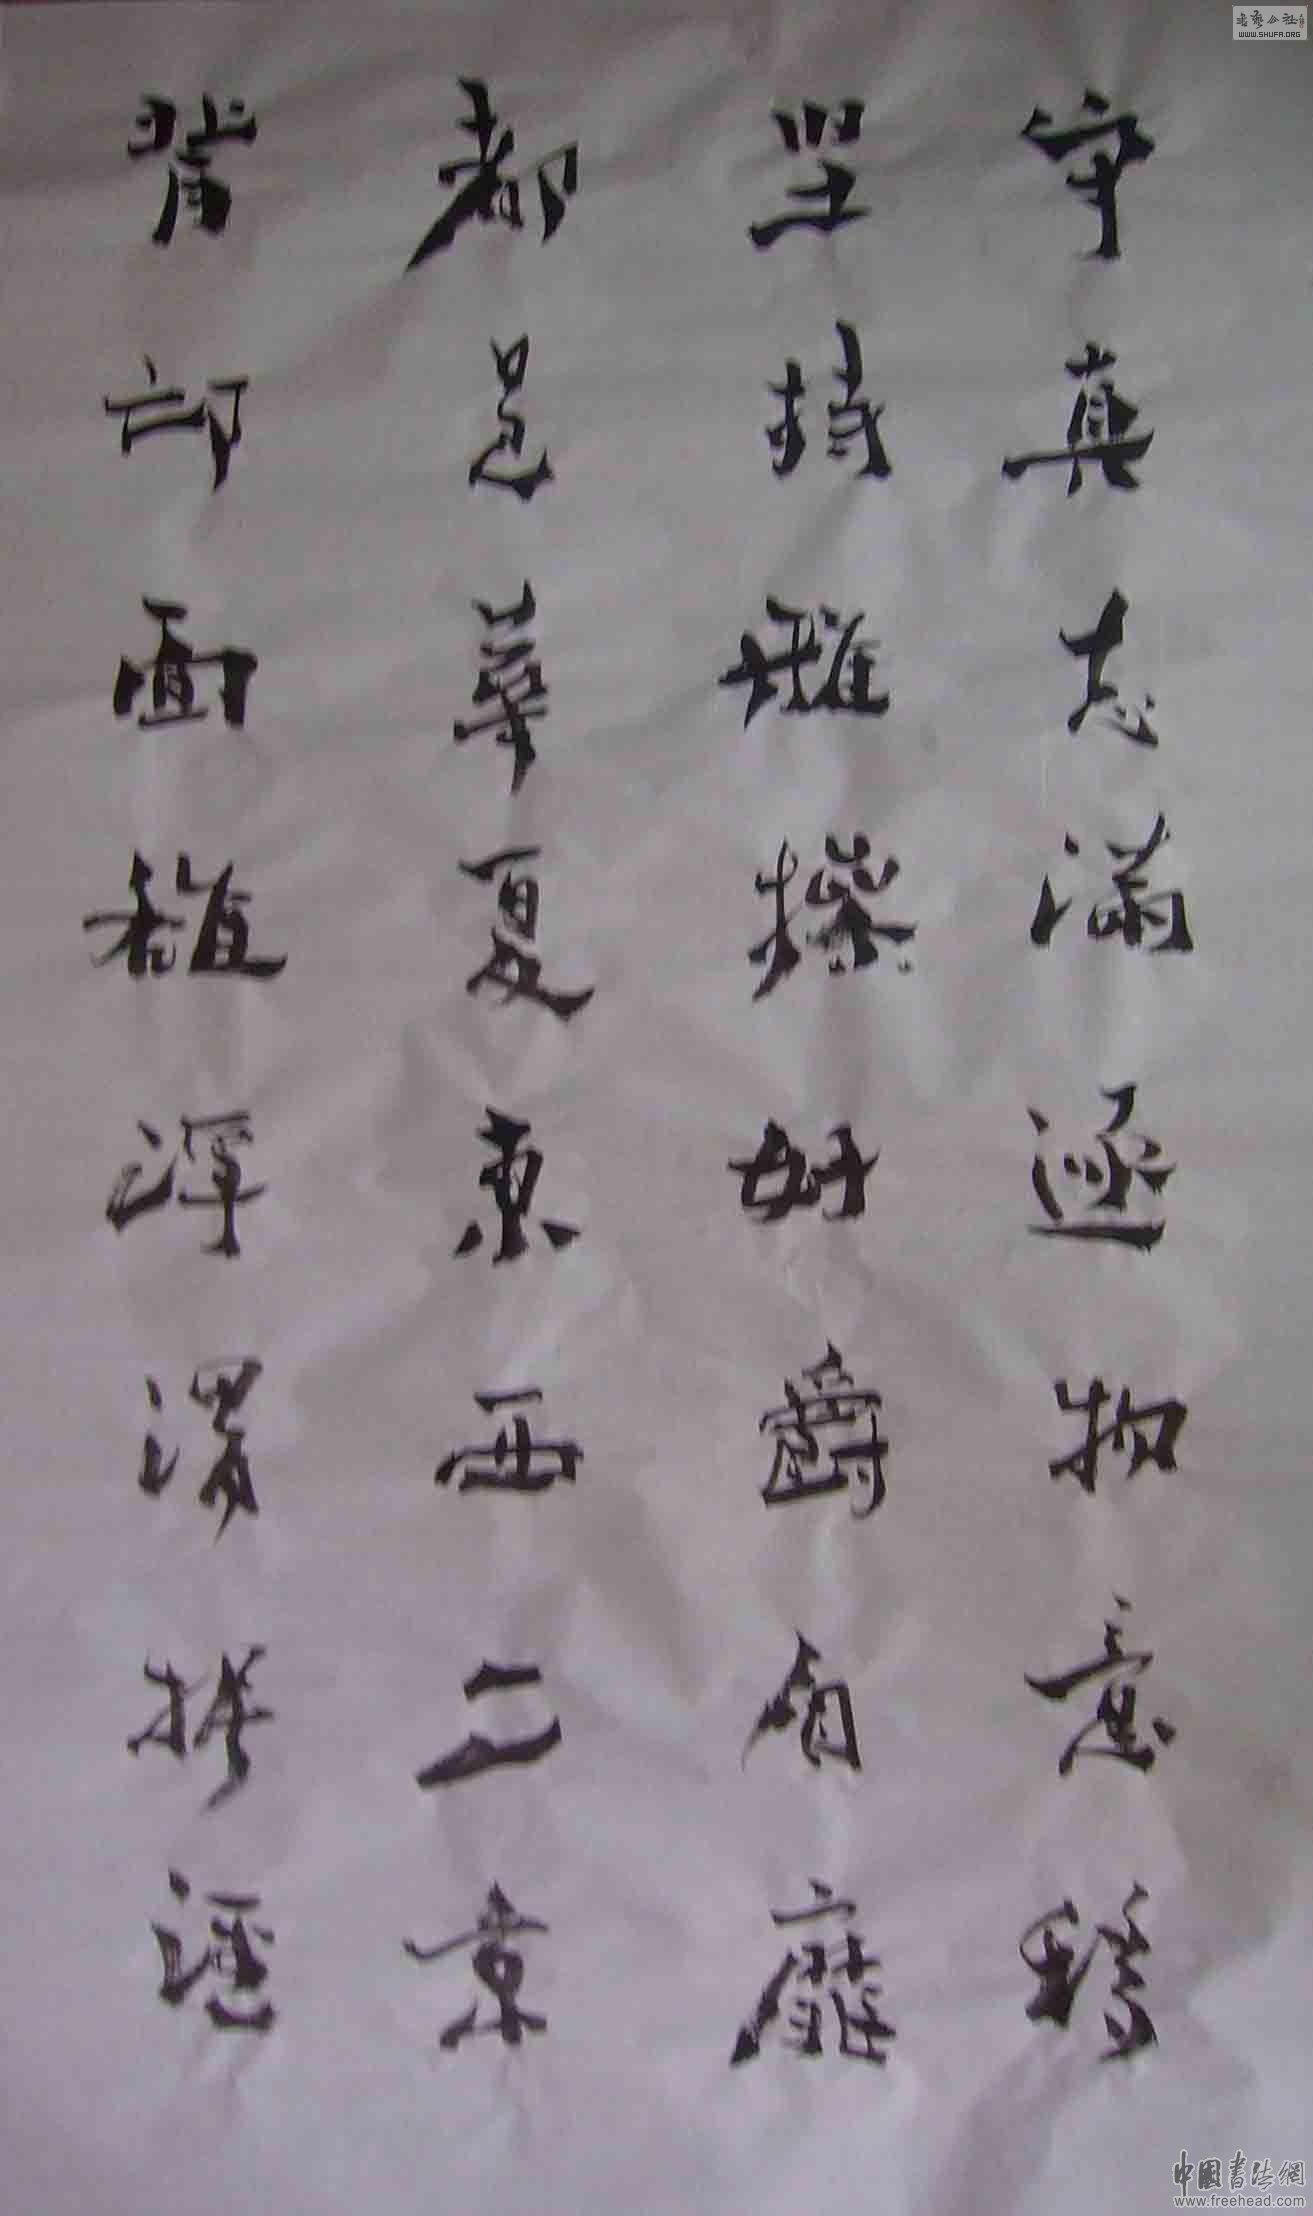 守真志满逐物意移
坚持雅操好爵自縻
都邑华夏东西二京
背邙面洛浮渭据泾
書法公社
WWW.SHUFA.ORG
中國書法網
www.freehead.com